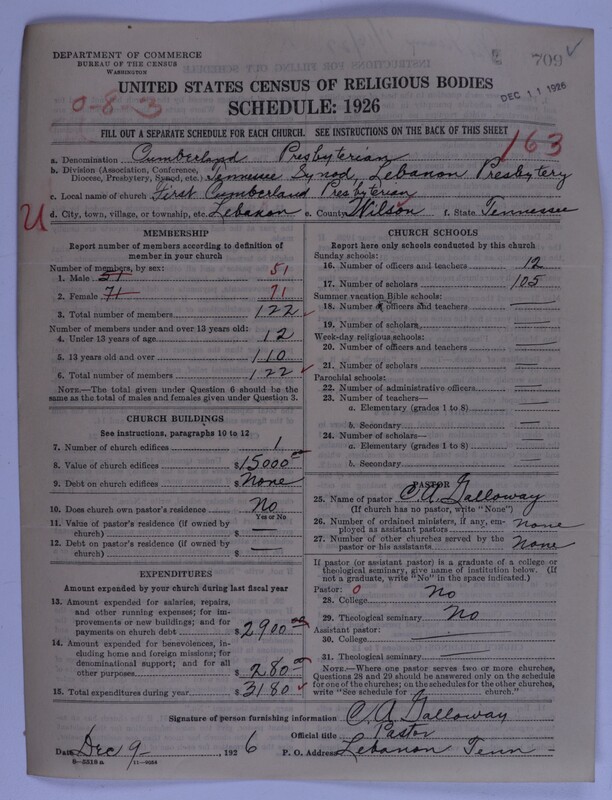 DEPARTMENT OF COMMERCE
BUREAU OF THE CENSUS
WASHINGTON
709 ✓
DEC 11 1926
UNITED STATES CENSUS OF RELIGIOUS BODIES
SCHEDULE: 1926
0-8-3
FILL OUT A SEPARATE SCHEDULE FOR EACH CHURCH. SEE INSTRUCTIONS ON THE BACK OF THIS SHEET
163
a. Denomination Cumberland Presbyterian
b. Division (Association, Conference, Diocese, Presbytery, Synod, etc.) Tennessee Synod, Lebanon Presbytery
c. Local name of church First Cumberland Presbyterian
U
d. City, town, village, or township, etc. Lebanon e. County Wilson f. State Tennessee
MEMBERSHIP
Report number of members according to definition of member in your church
Number of members, by sex:
1. Male 51 51
2. Female 71 71
3. Total number of members 122 ✓
Number of members under and over 13 years old:
4. Under 13 years of age 12
5. 13 years old and over 110
6. Total number of members 122 ✓
NOTE.—The total given under Question 6 should be the same as the total of males and females given under Question 3.
CHURCH BUILDINGS
See instructions, paragraphs 10 to 12
7. Number of church edifices 1
8. Value of church edifices $15000.00
9. Debt on church edifices $None
10. Does church own pastor's residence No
Yes or No
11. Value of pastor's residence (if owned by church) $ —
12. Debt on pastor's residence (if owned by church) $ —
EXPENDITURES
Amount expended by your church during last fiscal year
13. Amount expended for salaries, repairs, and other running expenses; for improvements or new buildings; and for payments on church debt $2900.00
14. Amount expended for benevolences, including home and foreign missions; for denominational support; and for all other purposes $280.00
15. Total expenditures during year $3180 ✓
CHURCH SCHOOLS
Report here only schools conducted by this church
Sunday schools:
16. Number of officers and teachers 12
17. Number of scholars 105
Summer vacation Bible schools:
18. Number of officers and teachers —
19. Number of scholars —
Week-day religious schools:
20. Number of officers and teachers —
21. Number of scholars —
Parochial schools:
22. Number of administrative officers —
23. Number of teachers—
a. Elementary (grades 1 to 8) —
b. Secondary —
24. Number of scholars—
a. Elementary (grades 1 to 8) —
b. Secondary —
PASTOR
25. Name of pastor C. A. Galloway
(If church has no pastor, write "None")
26. Number of ordained ministers, if any, employed as assistant pastors none
27. Number of other churches served by the pastor or his assistants None
If pastor (or assistant pastor) is a graduate of a college or theological seminary, give name of institution below. (If not a graduate, write "No" in the space indicated.)
Pastor: 0
28. College No
29. Theological seminary No
Assistant pastor:
30. College —
31. Theological seminary —
NOTE.—Where one pastor serves two or more churches, Questions 28 and 29 should be answered only on the schedule for one of the churches; on the schedules for the other churches, write "See schedule for church."
Signature of person furnishing information C. A. Galloway
Official title Pastor
Date Dec 9 1926 P. O. Address Lebanon Tenn
8-5318a 11-9084